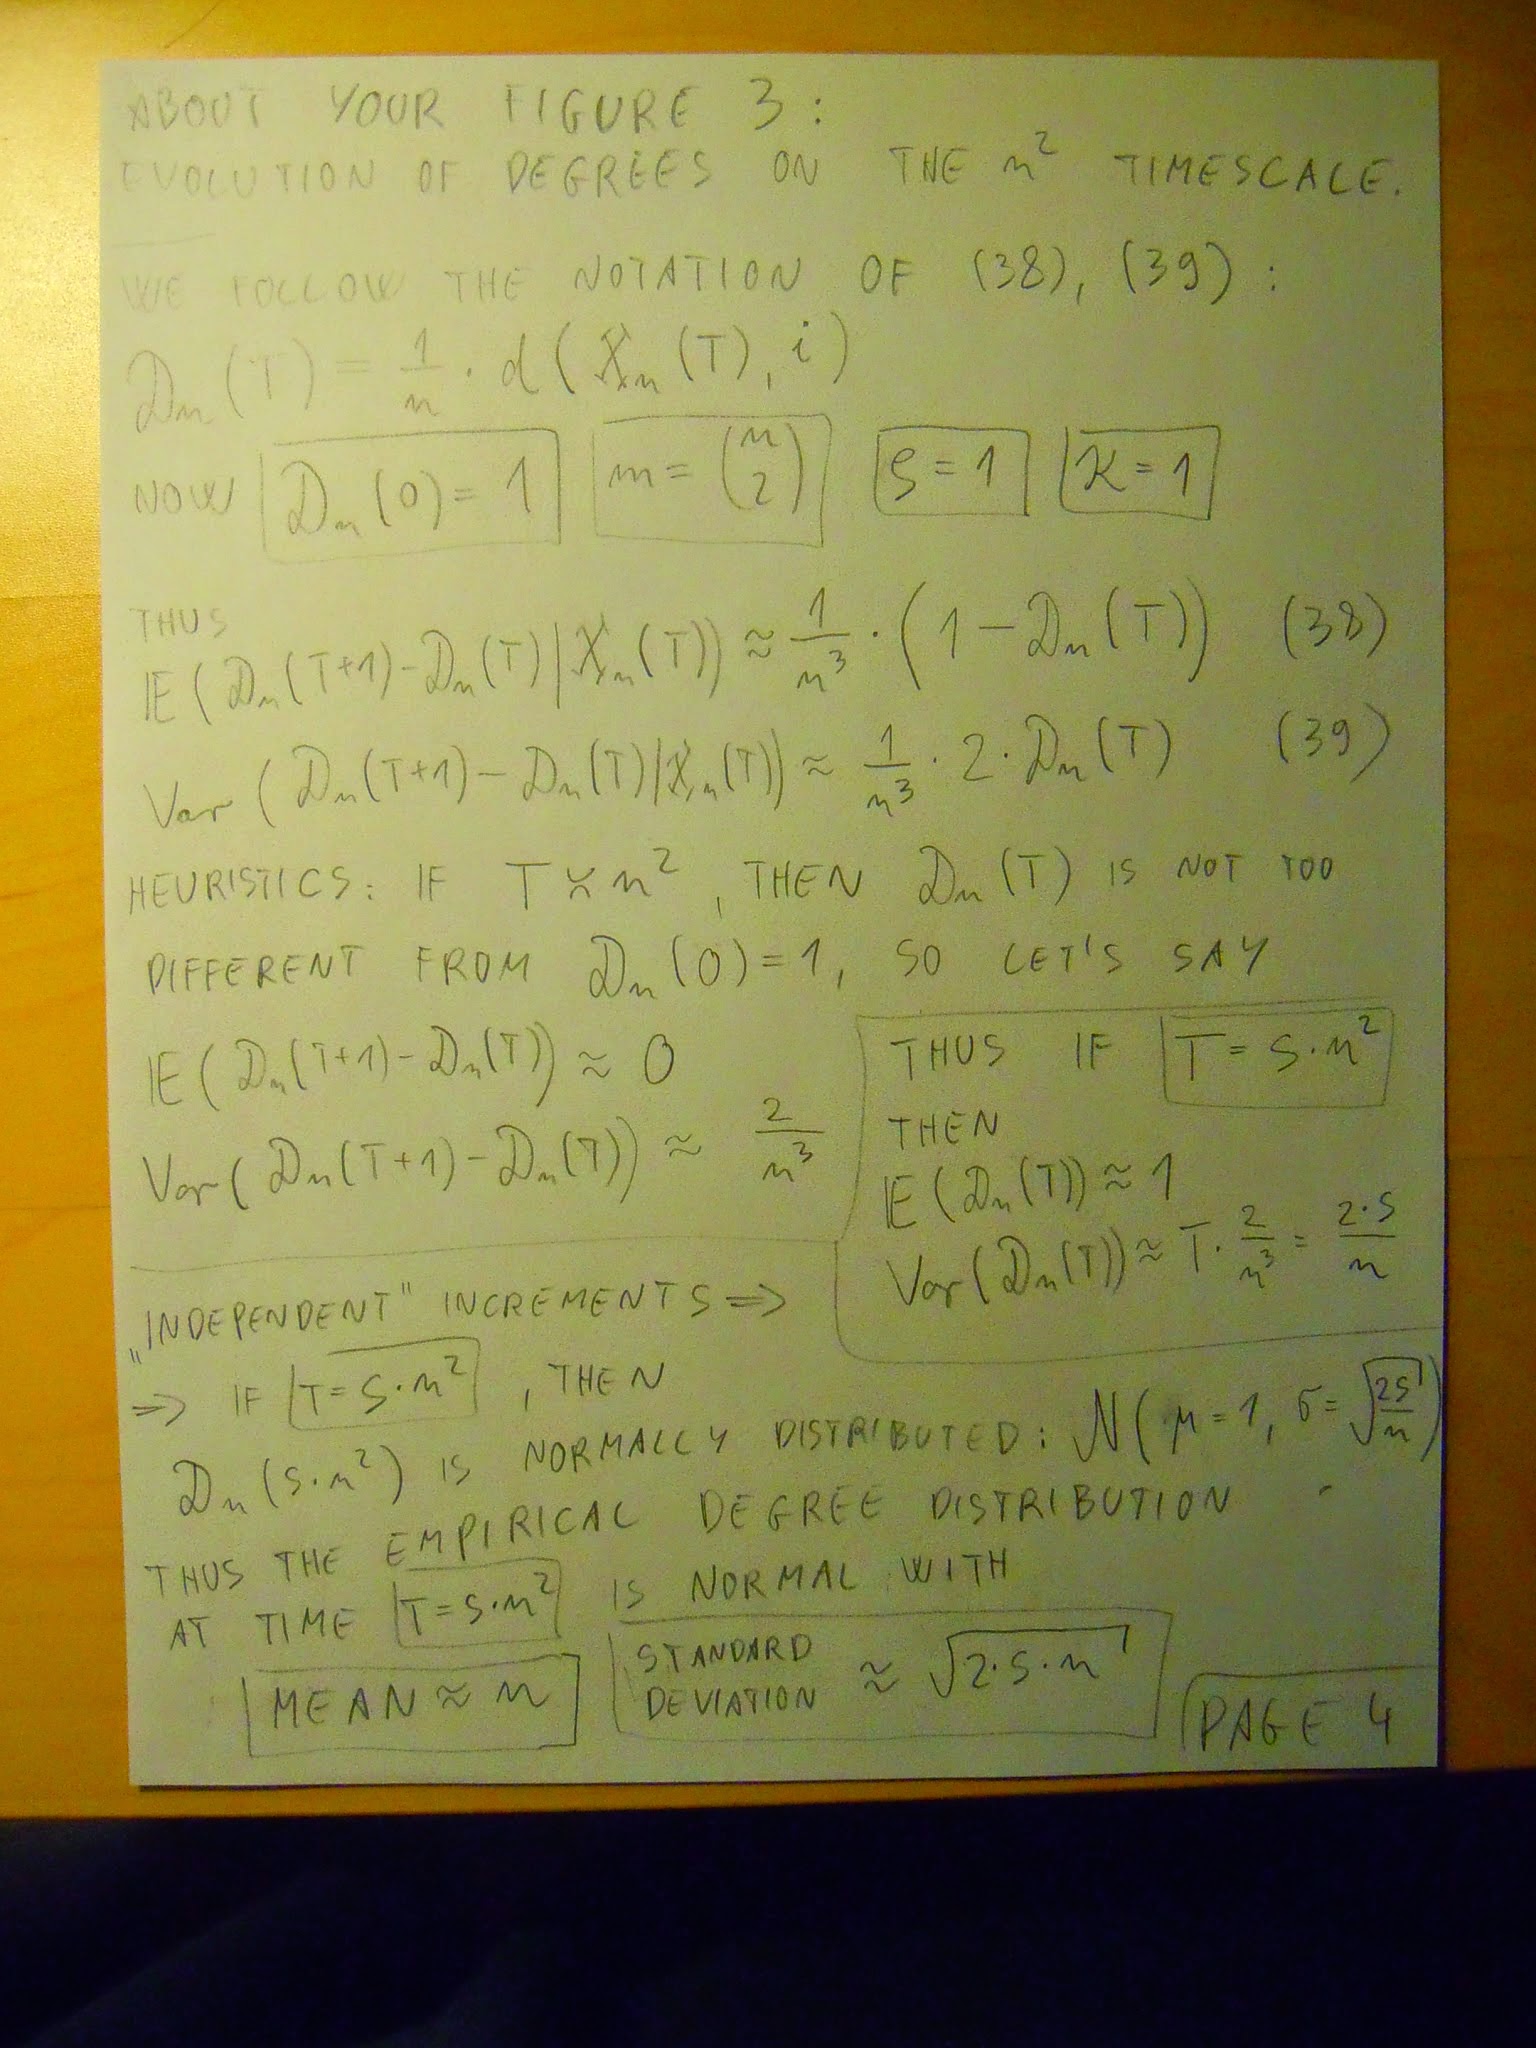 ABOUT YOUR FIGURE 3:
EVOLUTION OF DEGREES ON THE n² TIMESCALE.
WE FOLLOW THE NOTATION OF (38), (39):
Dₙ(T) = 1/n · d(Xₙ(T), i)
NOW Dₙ(0) = 1 m = (n 2) ϱ = 1 κ = 1
THUS
E(Dₙ(T+1) - Dₙ(T) | Xₙ(T)) ≈ 1/n³ · (1 - Dₙ(T)) (38)
Var(Dₙ(T+1) - Dₙ(T) | Xₙ(T)) ≈ 1/n³ · 2 · Dₙ(T) (39)
HEURISTICS: IF T ≍ n², THEN Dₙ(T) IS NOT TOO
DIFFERENT FROM Dₙ(0) = 1, SO LET'S SAY
E(Dₙ(T+1) - Dₙ(T)) ≈ 0
Var(Dₙ(T+1) - Dₙ(T)) ≈ 2/n³
THUS IF T = S·n²
THEN
E(Dₙ(T)) ≈ 1
Var(Dₙ(T)) ≈ T · 2/n³ = 2·S/n
„INDEPENDENT" INCREMENTS ⇒
⇒ IF T = S·n², THEN
Dₙ(S·n²) IS NORMALLY DISTRIBUTED: N(μ = 1, σ = √(2S/n))
THUS THE EMPIRICAL DEGREE DISTRIBUTION
AT TIME T = S·n² IS NORMAL WITH
MEAN ≈ n
STANDARD
DEVIATION ≈ √(2·S·n)
PAGE 4